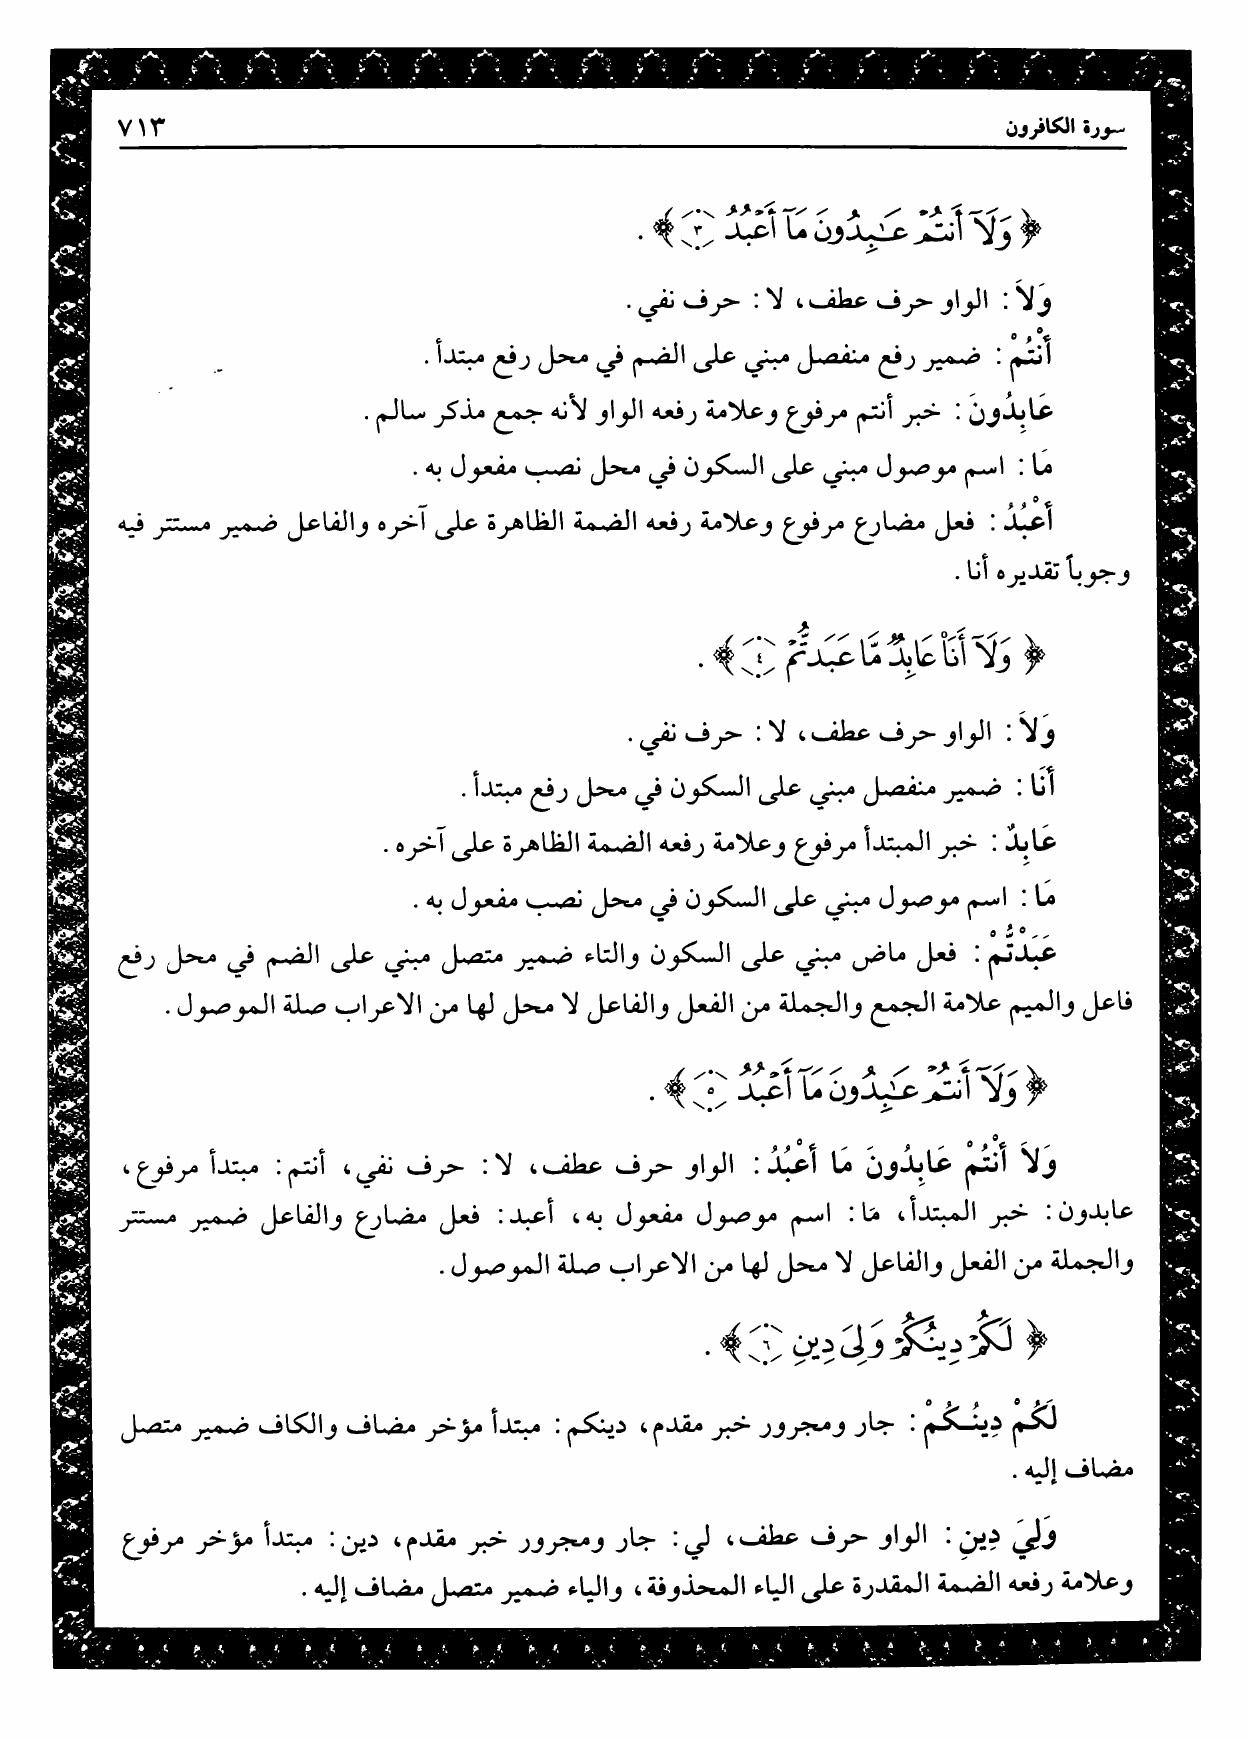 سورة الكافرون ٧١٣
﴿ وَلَآ أَنتُمْ عَٰبِدُونَ مَآ أَعْبُدُ ٣ ﴾ .
وَلاَ : الواو حرف عطف، لا : حرف نفي .
أَنْتُمْ : ضمير رفع منفصل مبني على الضم في محل رفع مبتدأ .
عَابِدُونَ : خبر أنتم مرفوع وعلامة رفعه الواو لأنه جمع مذكر سالم .
مَا : اسم موصول مبني على السكون في محل نصب مفعول به .
أَعْبُدُ : فعل مضارع مرفوع وعلامة رفعه الضمة الظاهرة على آخره والفاعل ضمير مستتر فيه
وجوباً تقديره أنا .
﴿ وَلَآ أَنَا۠ عَابِدٌ مَّا عَبَدتُّمْ ٤ ﴾ .
وَلاَ : الواو حرف عطف، لا : حرف نفي .
أَنَا : ضمير منفصل مبني على السكون في محل رفع مبتدأ .
عَابِدٌ : خبر المبتدأ مرفوع وعلامة رفعه الضمة الظاهرة على آخره .
مَا : اسم موصول مبني على السكون في محل نصب مفعول به .
عَبَدْتُّمْ : فعل ماض مبني على السكون والتاء ضمير متصل مبني على الضم في محل رفع
فاعل والميم علامة الجمع والجملة من الفعل والفاعل لا محل لها من الاعراب صلة الموصول .
﴿ وَلَآ أَنتُمْ عَٰبِدُونَ مَآ أَعْبُدُ ٥ ﴾ .
وَلاَ أَنْتُمْ عَابِدُونَ مَا أَعْبُدُ : الواو حرف عطف، لا : حرف نفي، أنتم : مبتدأ مرفوع،
عابدون : خبر المبتدأ، مَا : اسم موصول مفعول به، أعبد : فعل مضارع والفاعل ضمير مستتر
والجملة من الفعل والفاعل لا محل لها من الاعراب صلة الموصول .
﴿ لَكُمْ دِينُكُمْ وَلِىَ دِينِ ٦ ﴾ .
لَكُمْ دِينُكُمْ : جار ومجرور خبر مقدم، دينكم : مبتدأ مؤخر مضاف والكاف ضمير متصل
مضاف إليه .
وَلِيَ دِينِ : الواو حرف عطف، لي : جار ومجرور خبر مقدم، دين : مبتدأ مؤخر مرفوع
وعلامة رفعه الضمة المقدرة على الياء المحذوفة، والياء ضمير متصل مضاف إليه .